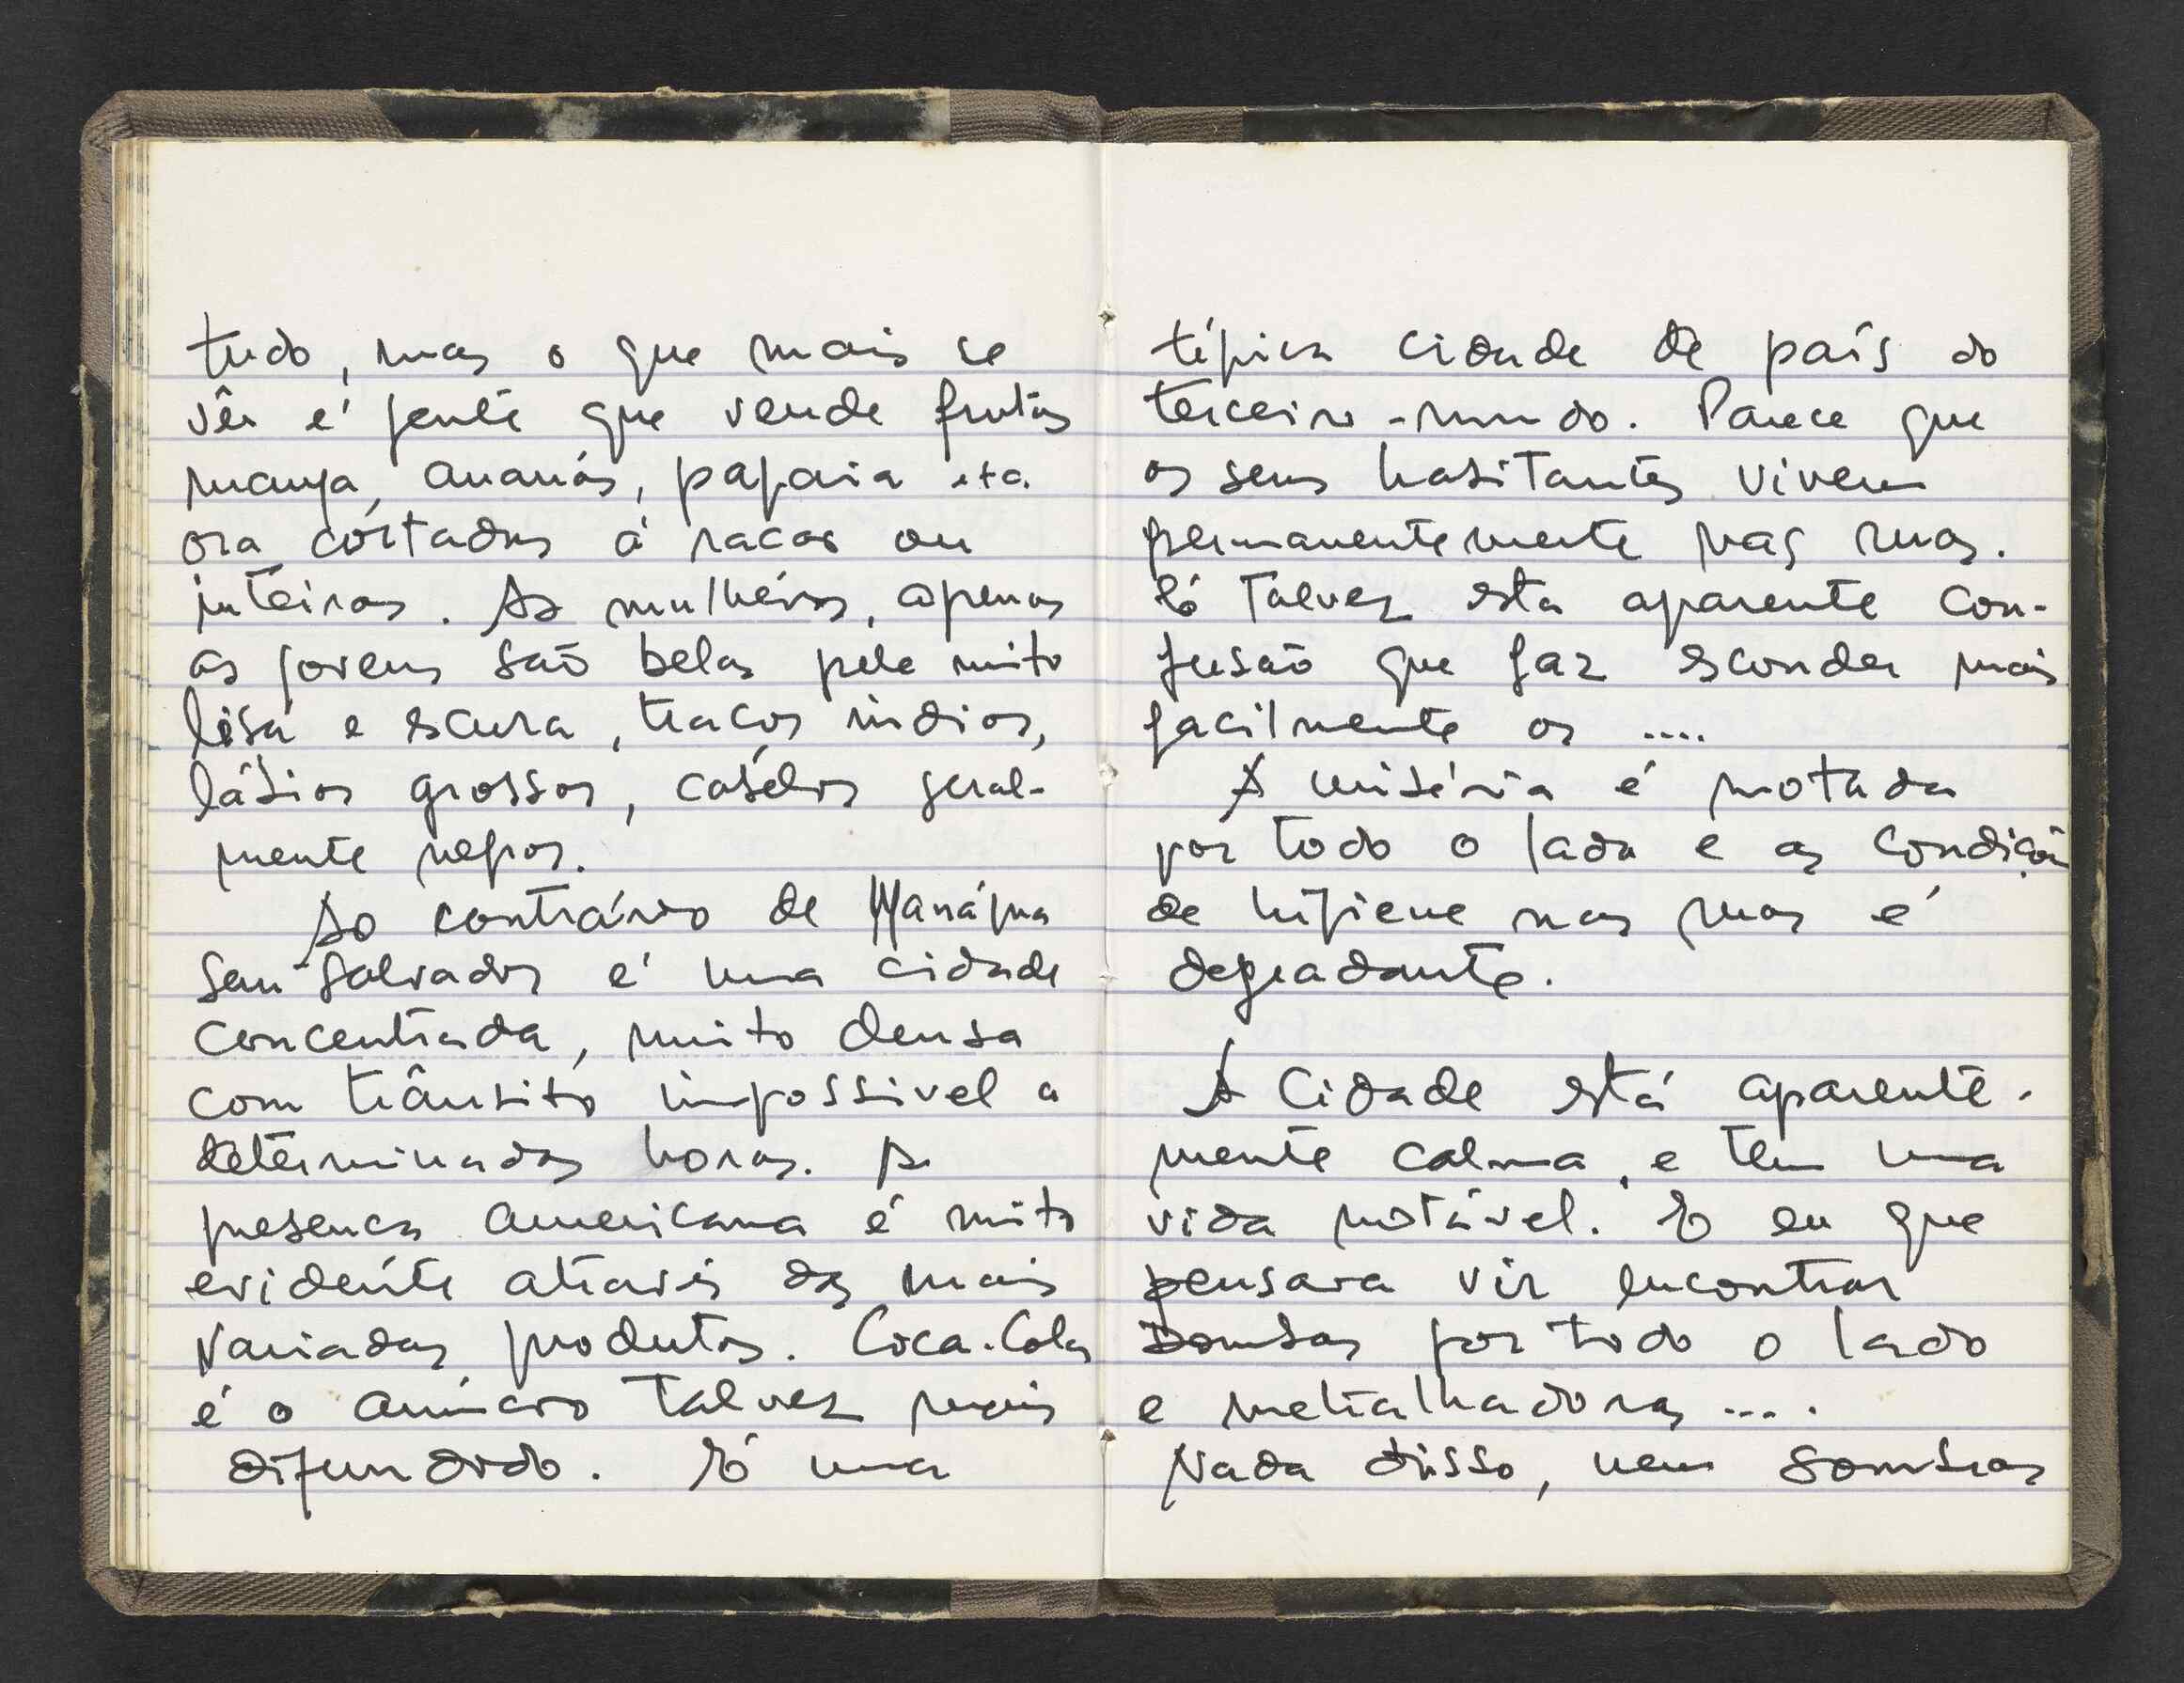 tudo, mas o que mais se
vêu é gente que vende frutas
manga, ananás, papaia etc.
ora córtadas á racas ou
inteiras. As mulhéres, apenas
as jovens são belas pele muito
lisa e escura, tracos indios,
lábios grossos, cabélos geral-
mente negros.
Ao contrário de Manágua
San-Salvador é uma cidade
concentrada, muito densa
com trânsito impossivel a
determinadas horas. A
presenca americana é muito
evidente através dos mais
variados produtos. Coca-Cola
é o anúncio talvez mais
difundido. É uma
típica cidade de país do
terceiro-mundo. Parece que
os seus habitantes vivem
permanentemente nas ruas.
É talvez esta aparente con-
fusão que faz esconder mais
facilmente os ....
A miséria é notada
por todo o lado e as condiçõe
de higiene nas ruas é
degradante.
A cidade está aparente-
mente calma, e tem uma
vida notável. E eu que
pensara vir encontrar
bombas por todo o lado
e metralhadoras ....
Nada disso, nem sombras